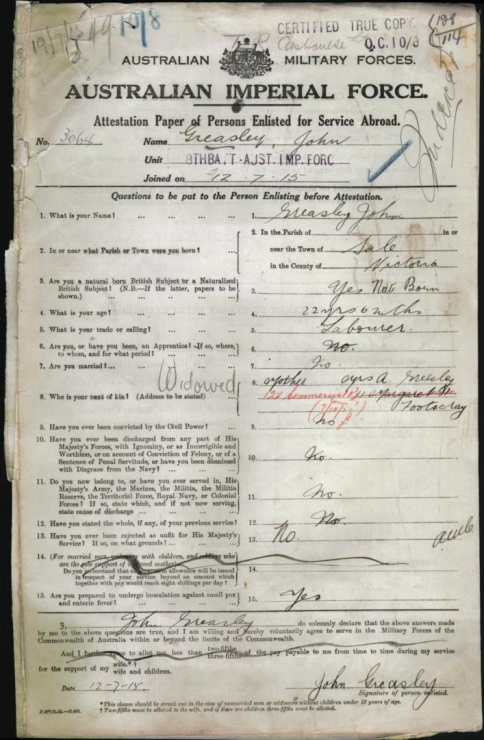 CERTIFIED TRUE COPY
O.C. 10/8
AUSTRALIAN MILITARY FORCES.
AUSTRALIAN IMPERIAL FORCE.
Attestation Paper of Persons Enlisted for Service Abroad.
No. 3064 Name Greasley, John
Unit 8THBATT AUST IMP FORC
Joined on 12.7.15
Indexed
Questions to be put to the Person Enlisting before Attestation.
1. What is your Name? ... ... ... 1. Greasley John
2. In or near what Parish or Town were you born? ... 2. In the Parish of in or
near the Town of Sale
in the County of Victoria
3. Are you a natural born British Subject or a Naturalized
British Subject? (N.B.—If the latter, papers to be
shown.) ... ... 3. Yes Nat Born
4. What is your age? ... ... ... 4. 22yrs 0 mths
5. What is your trade or calling? ... ... 5. Labourer.
6. Are you, or have you been, an Apprentice? If so, where,
to whom, and for what period? ... ... 6. No.
7. Are you married? ... ... ... 7. No.
Widowed
8. Who is your next of kin? (Address to be stated) ... 8. Mother Mrs A. Greasley
Commercial
Footscray
9. Have you ever been convicted by the Civil Power? ... 9. No
10. Have you ever been discharged from any part of His
Majesty's Forces, with Ignominy, or as Incorrigible and
Worthless, or on account of Conviction of Felony, or of a
Sentence of Penal Servitude, or have you been dismissed
with Disgrace from the Navy? ... ... 10. No.
11. Do you now belong to, or have you ever served in, His
Majesty's Army, the Marines, the Militia, the Militia
Reserve, the Territorial Force, Royal Navy, or Colonial
Forces? If so, state which, and if not now serving,
state cause of discharge ... ... 11. No.
12. Have you stated the whole, if any, of your previous service? 12. No.
13. Have you ever been rejected as unfit for His Majesty's
Service? If so, on what grounds? ... ... 13. No.
14. (For married men, widowers with children, and soldiers who
are the sole support of widowed mother)—
Do you understand that no separation allowance will be issued
in respect of your service beyond an amount which
together with pay would reach eight shillings per day? 14.
15. Are you prepared to undergo inoculation against small pox
and enteric fever? ... ... 15. Yes
I, John Greasley do solemnly declare that the above answers made
by me to the above questions are true, and I am willing and hereby voluntarily agree to serve in the Military Forces of the
Commonwealth of Australia within or beyond the limits of the Commonwealth.
And I further agree to allot not less than two-fifths three-fifths of the pay payable to me from time to time during my service
for the support of my wife.* † wife and children.
Date 12-7-15. John Greasley
Signature of person enlisted.
*This clause should be struck out in the case of unmarried men or widowers without children under 18 years of age.
† Two-fifths must be allotted to the wife, and if there are children three-fifths must be allotted.